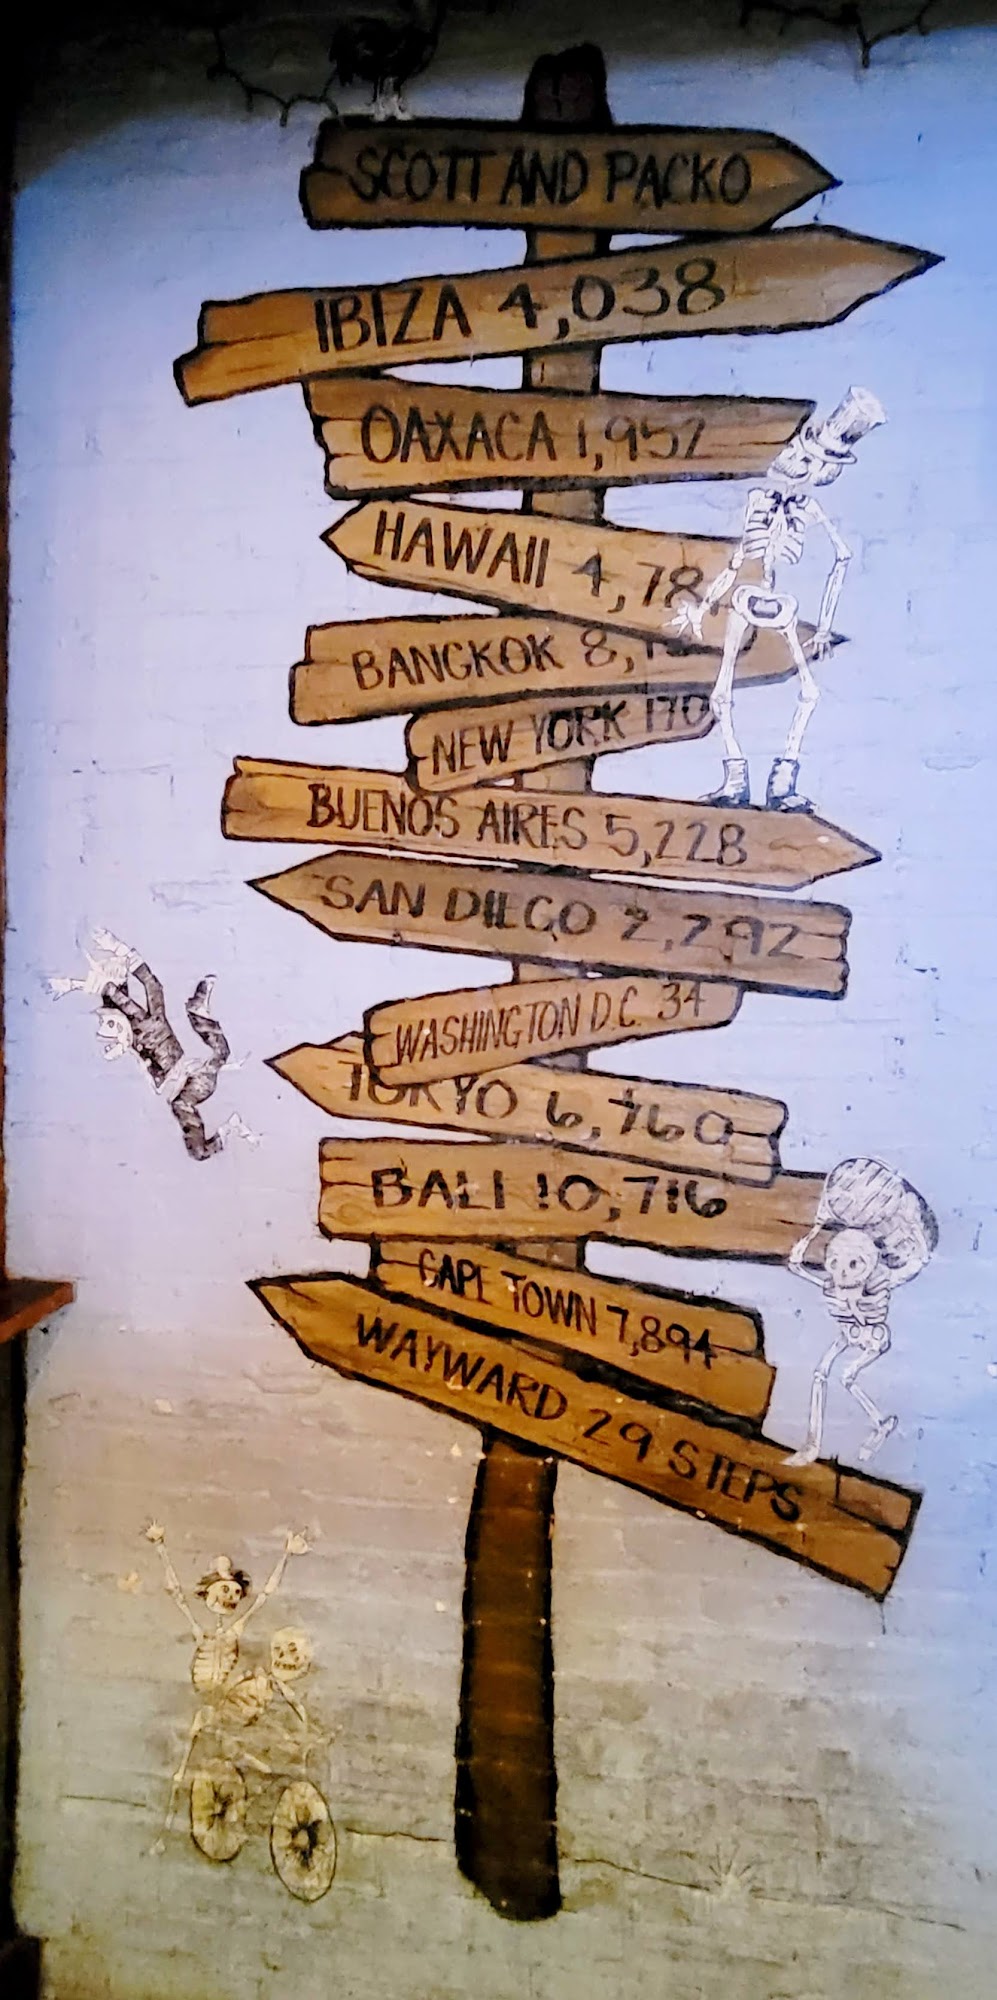 SCOTT AND PACKO
IBIZA 4,038
OAXACA 1,952
HAWAII
BANGKOK
NEW YORK 170
BUENOS AIRES 5,228
SAN DIEGO 2,292
WASHINGTON D.C. 34
TOKYO 6,760
BALI 10,716
CAPE TOWN 7,894
WAYWARD 29 STEPS